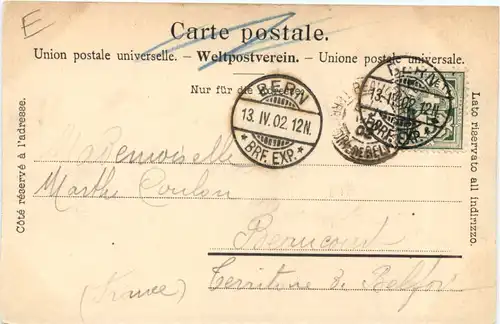 E
Carte postale.
Union postale universelle. - Weltpostverein. - Unione postale universale.
Nur für die Adresse.
BERN
13. IV. 02. 12N.
* BRF. EXP. *
BERN
13. IV. 02. 12N.
* BRF. EXP. *
Côté réservé à l'adresse.
Lato riservato all indirizzo.
Mademoiselle
Marthe Coulon
Beaucourt
Territoire de Belfort
(France)